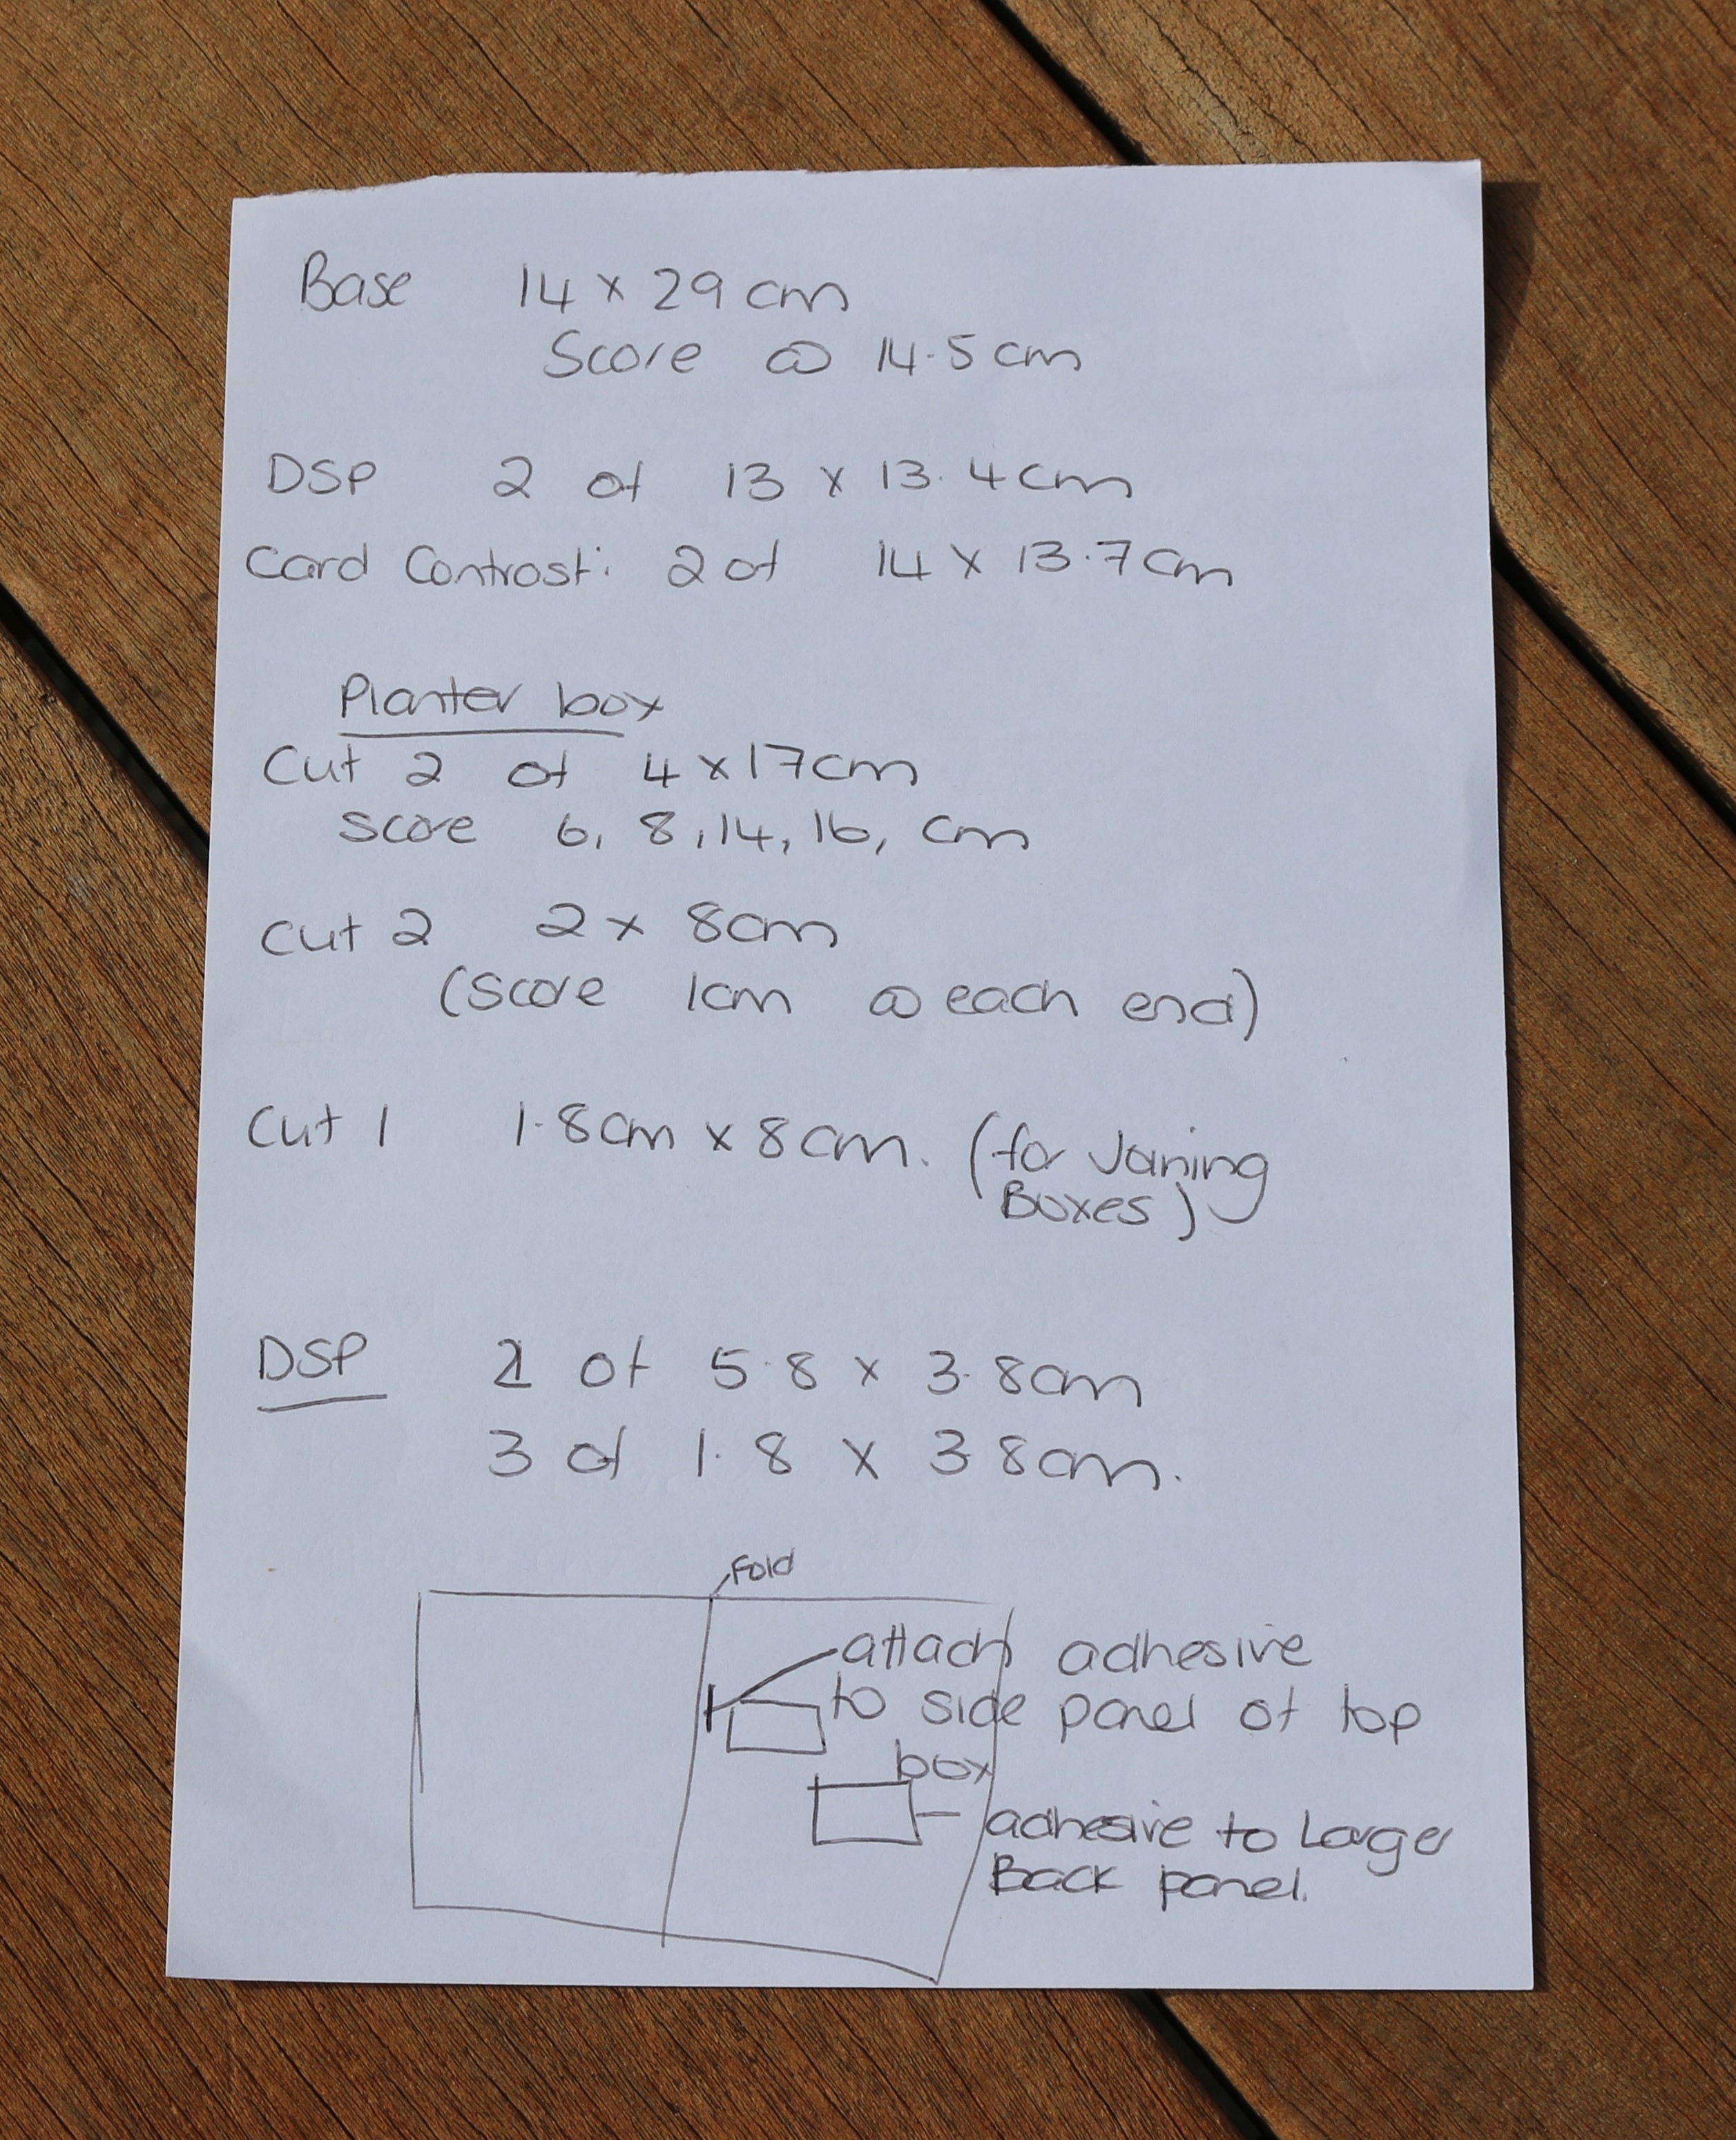 Base 14 x 29 cm
Score @ 14.5 cm
DSP 2 of 13 x 13.4 cm
Card Contrast: 2 of 14 x 13.7 cm
Planter box
Cut 2 of 4 x 17cm
score 6, 8, 14, 16, cm
Cut 2 2 x 8cm
(score 1cm @ each end)
Cut 1 1.8cm x 8cm. (for Joining
Boxes)
DSP of 5.8 x 3.8cm
3 of 1.8 x 3.8cm.
Fold
attach adhesive
to side panel of top
box
adhesive to Larger
Back panel.